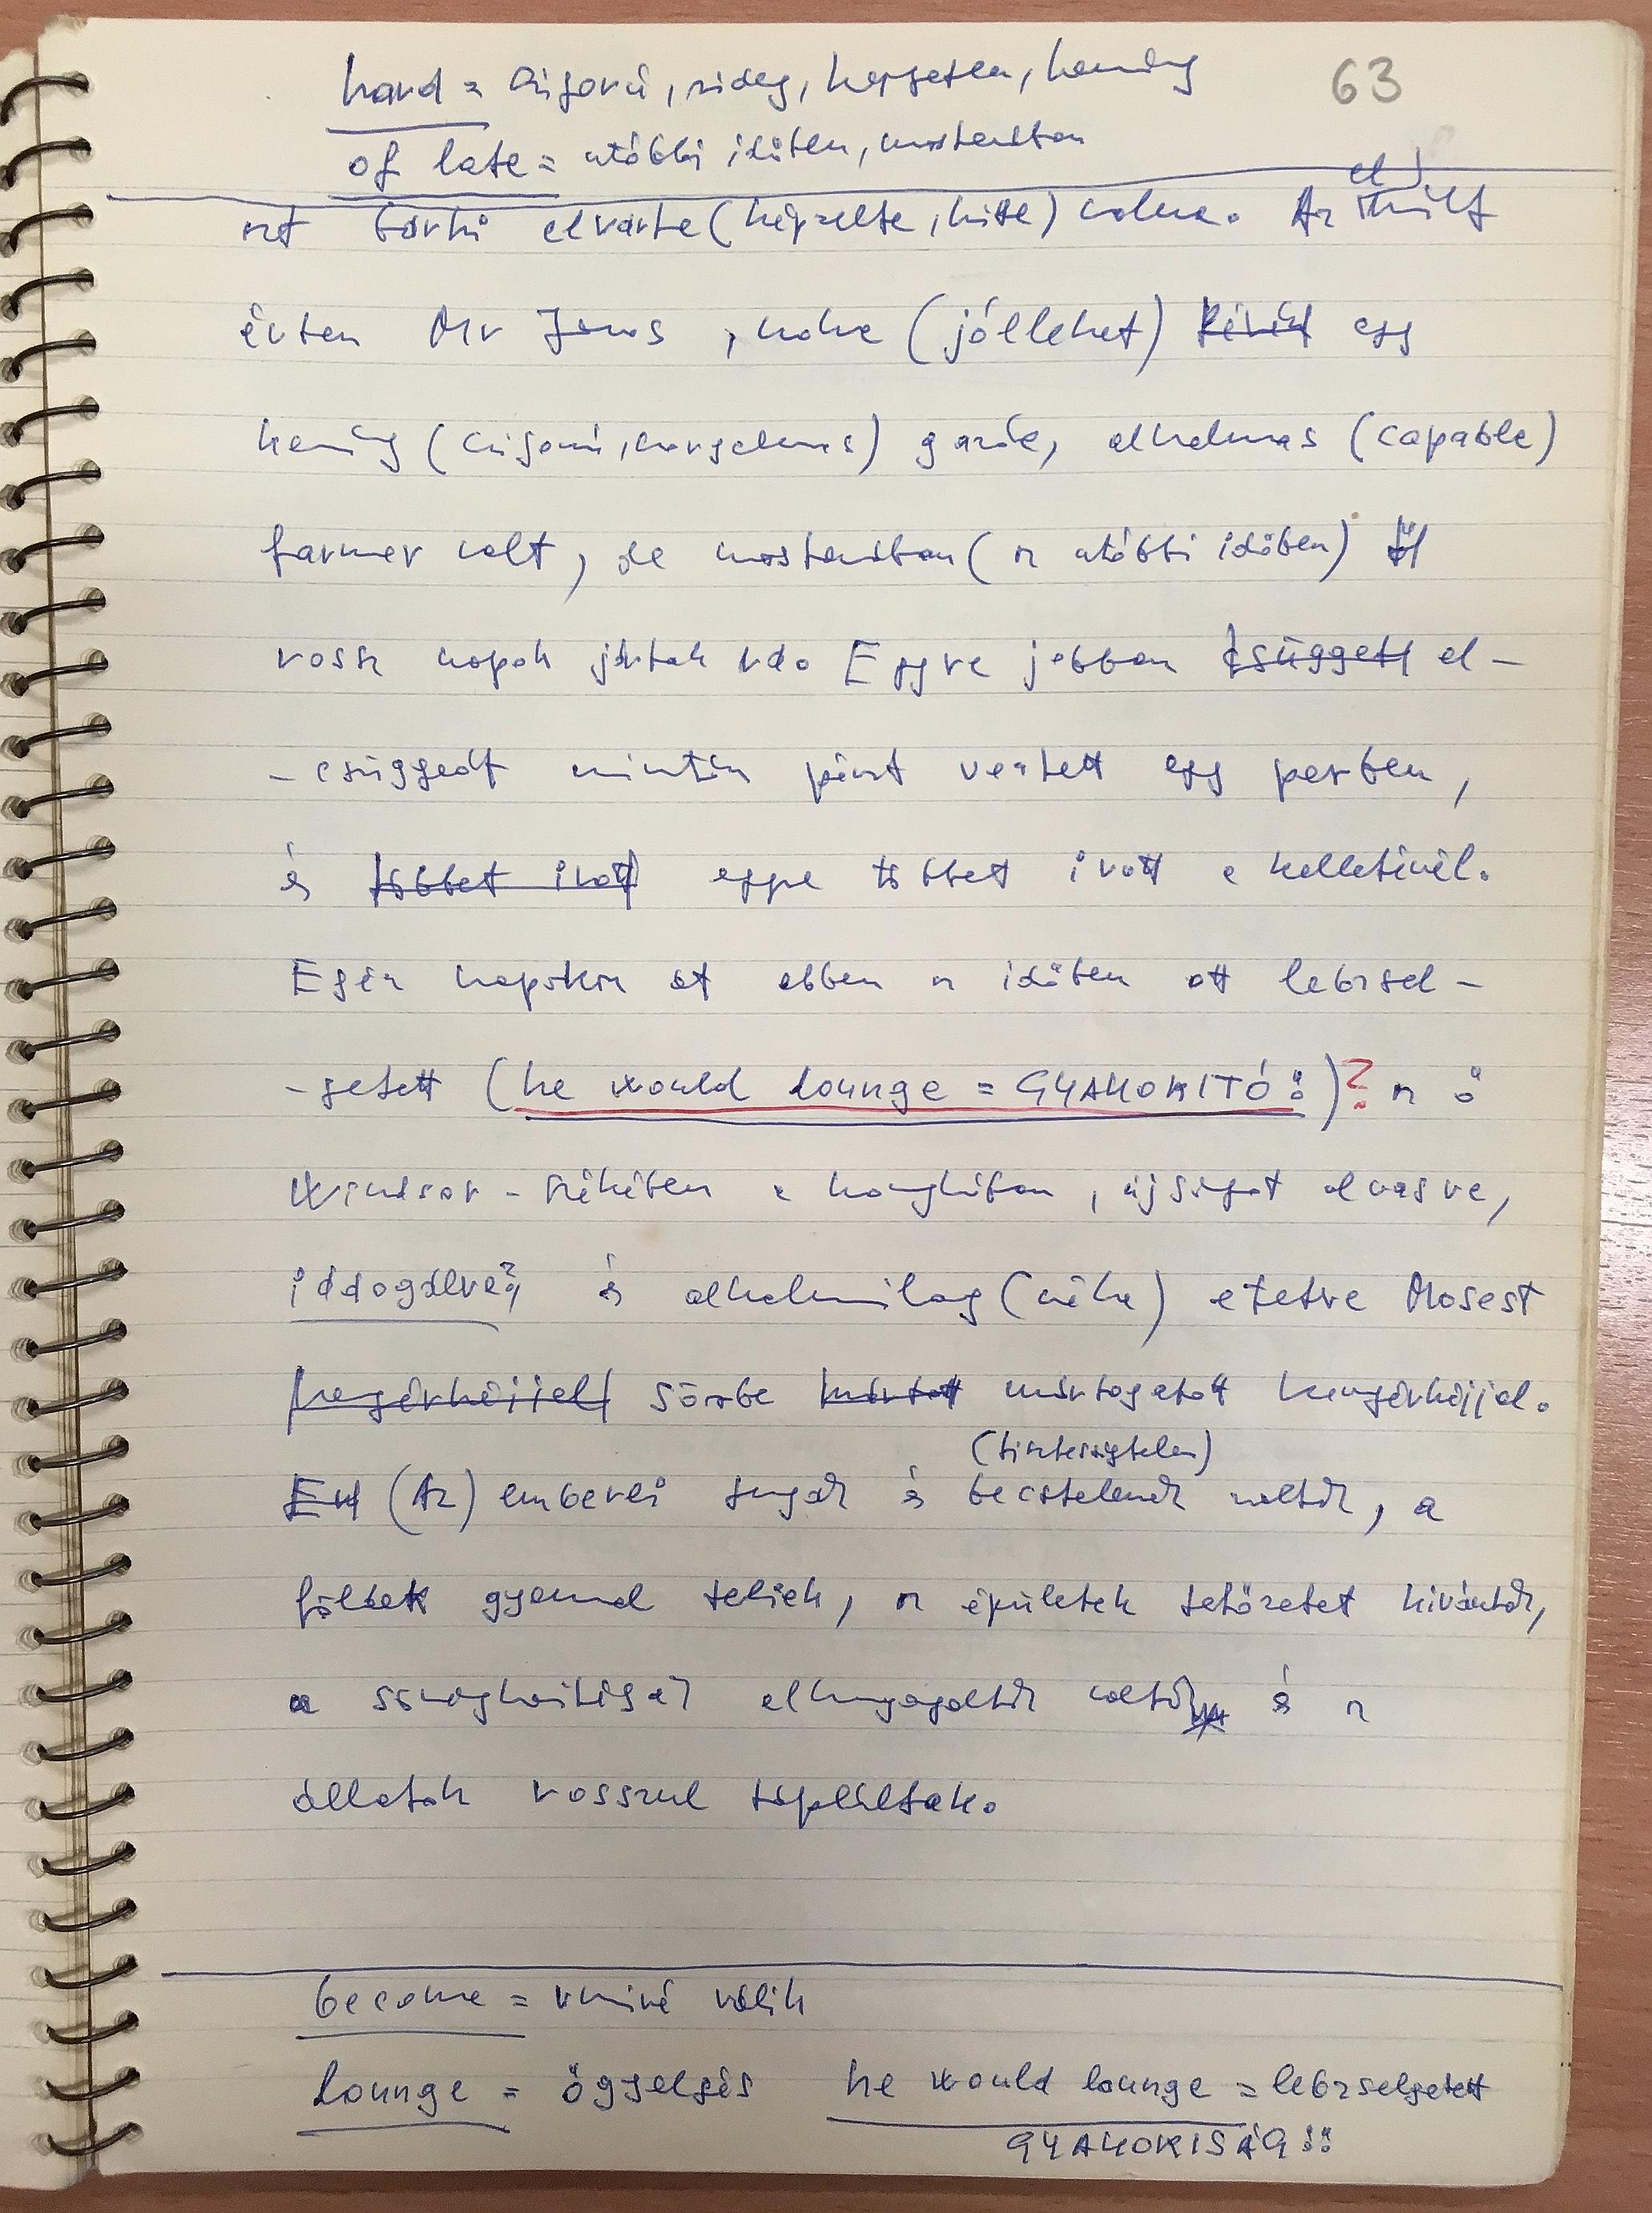 63
hard = szigorú, rideg, kérgetlen, kemény
of late = utóbbi időben, mostanában
azt bárki elvárta (képzelte, hitte) volna. Az elmúlt
években Mr Jones, noha (jóllehet) kívül egy
kemény (szigorú, szorgalmas) gazda, alkalmas (capable)
farmer volt, de mostanában (az utóbbi időben)
rossz napok jártak rá. Egyre jobban csüggedt el-
-csüggedt miután pénzt vesztett egy perben,
és többet ivott egyre többet ivott a kelleténél.
Egész napokon át ebben az időben ott lebzsel-
-getett (he would lounge = GYAKORÍTÓ!)? az ő
Windsor-székében a konyhában, újságot olvasva,
iddogálva, és alkalmilag (néha) etetve Mosest
kenyérhéjjal sörbe mártott mártogatott kenyérhéjjal.
(tisztességtelen)
Em (Az) emberei lusták és becstelenek voltak, a
földek gyommal teliek, az épületek tetőzetet kívántak,
a sövények elhanyagoltak voltak és az
állatok rosszul tápláltak.
become = vmivé válik
Lounge = őgyelgés he would lounge = lebzselgetett
GYAKORISÁG!!